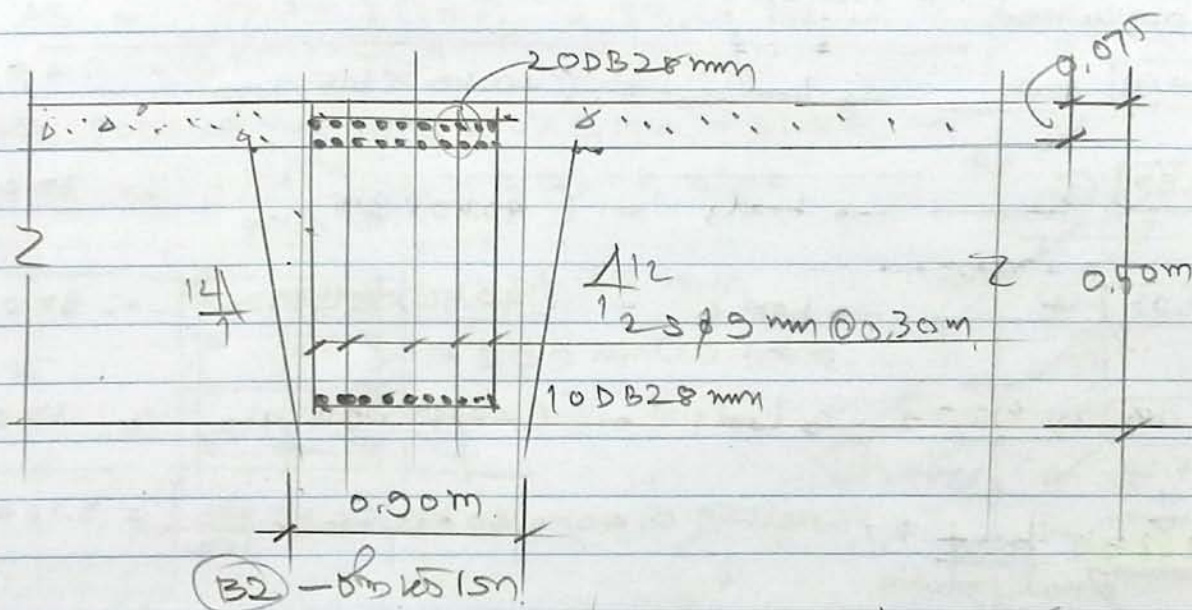 20DB28mm
0.075
12
1
12
1
2sφ9mm@0.30m
10DB28mm
0.90m
B2 -